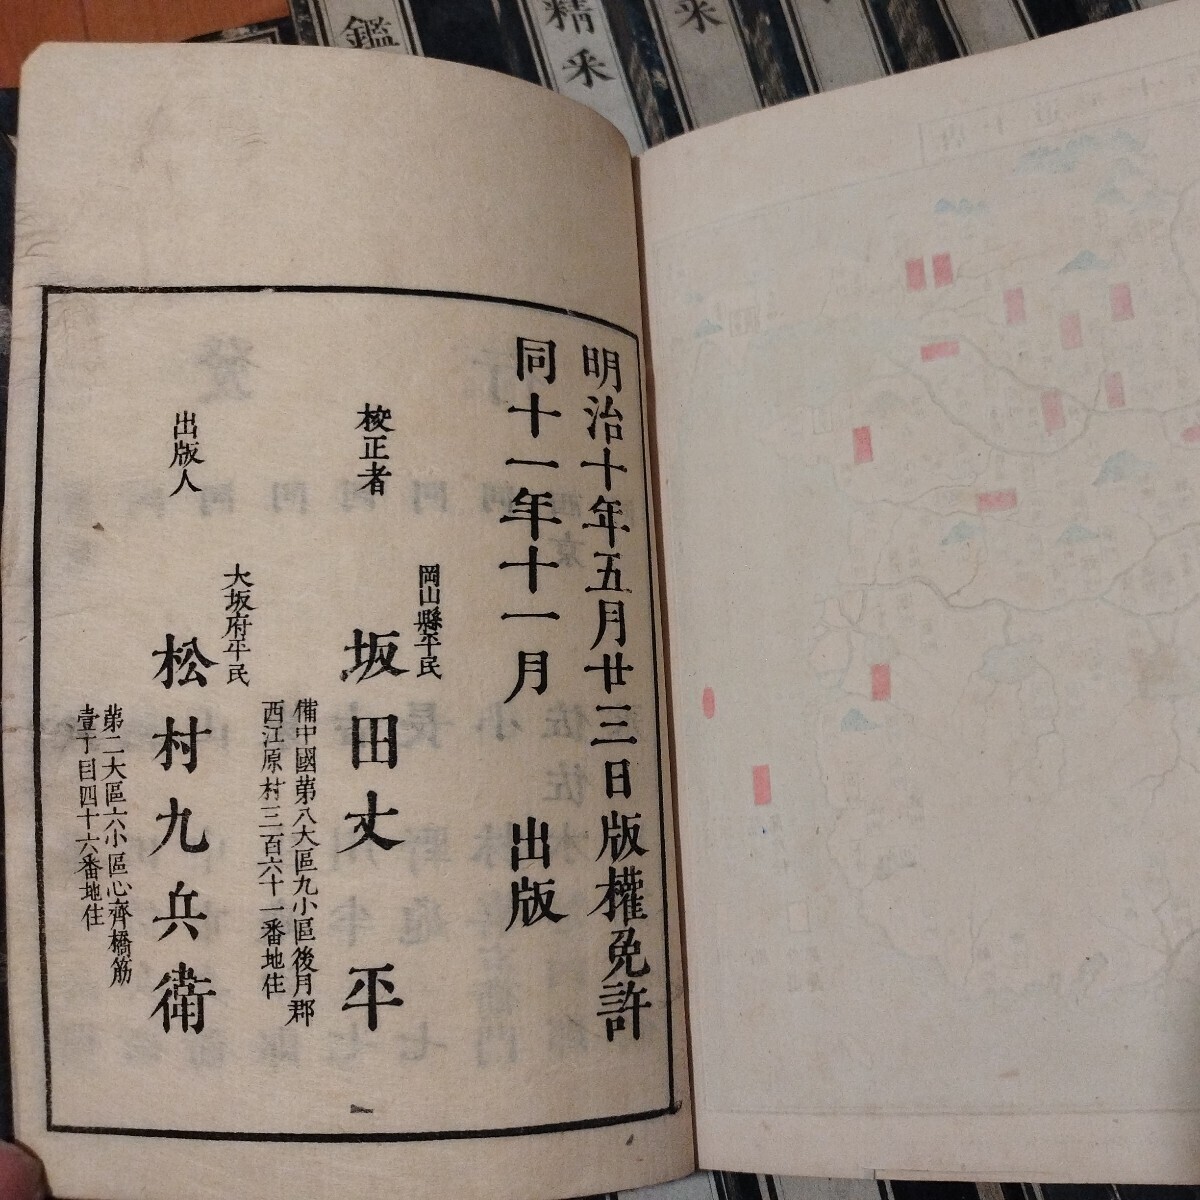 明治十年五月廿三日版權免許
同十一年十一月 出版
校正者
岡山縣平民
坂田丈平
備中國第八大區九小區後月郡
西江原村三百六十一番地住
出版人
大坂府平民
松村九兵衛
第二大區六小區心齊橋筋
壹丁目四十六番地住
鑑
精采
采